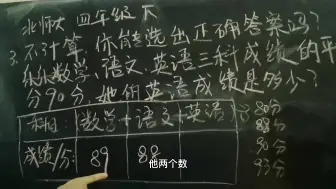 北师大 四年级 下
3.不计算,你能选出正确答案吗?
数学、语文、英语三科成绩的平
分90分,她的英语成绩是多少?
科目 数学+语文+英语
成绩/分 89 88
80分
88分
90分
93分
他两个数